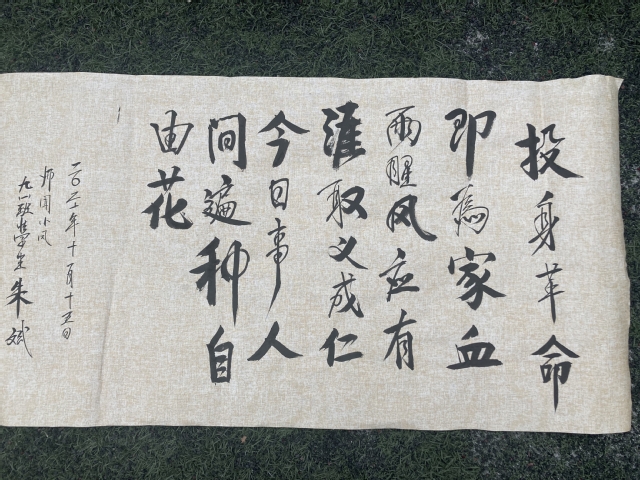 投身革命
即為家血
雨腥风应有
涯取义成仁
今日事人
间遍种自
由花
二〇二一年十一月十五日
朱斌